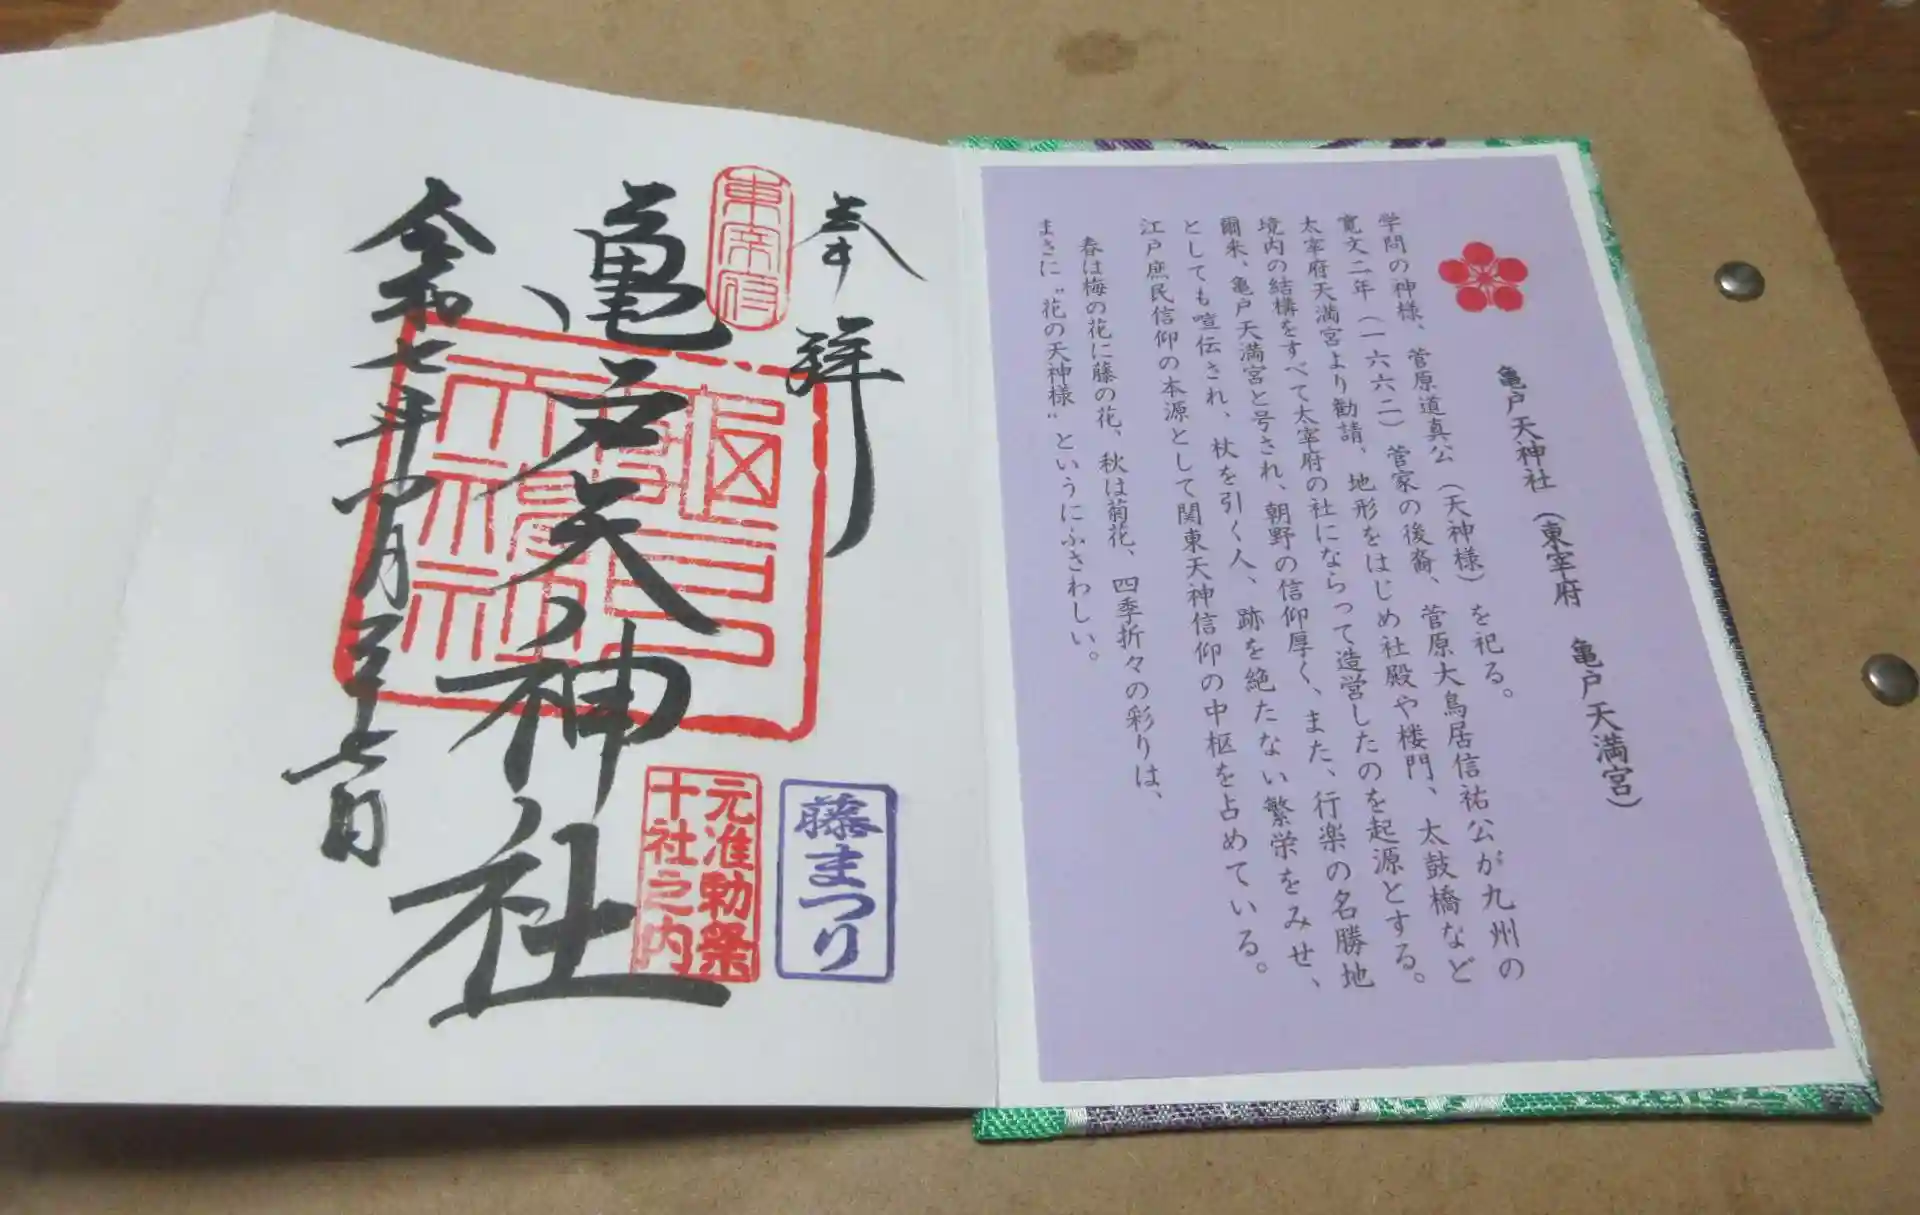 亀戸天神社（東宰府　亀戸天満宮）
学問の神様、菅原道真公（天神様）を祀る。
寛文二年（一六六二）菅家の後裔、菅原大鳥居信祐公が九州の
太宰府天満宮より勧請、地形をはじめ社殿や楼門、太鼓橋など
境内の結構をすべて太宰府の社にならって造営したのを起源とする。
爾来、亀戸天満宮と号され、朝野の信仰厚く、また、行楽の名勝地
としても喧伝され、杖を引く人、跡を絶たない繁栄をみせ、
江戸庶民信仰の本源として関東天神信仰の中枢を占めている。
春は梅の花に藤の花、秋は菊花、四季折々の彩りは、
まさに〝花の天神様〟というにふさわしい。
奉拝
藤まつり
東宰府
亀戸天神社
元准勅祭
十社之内
令和七年四月二十七日